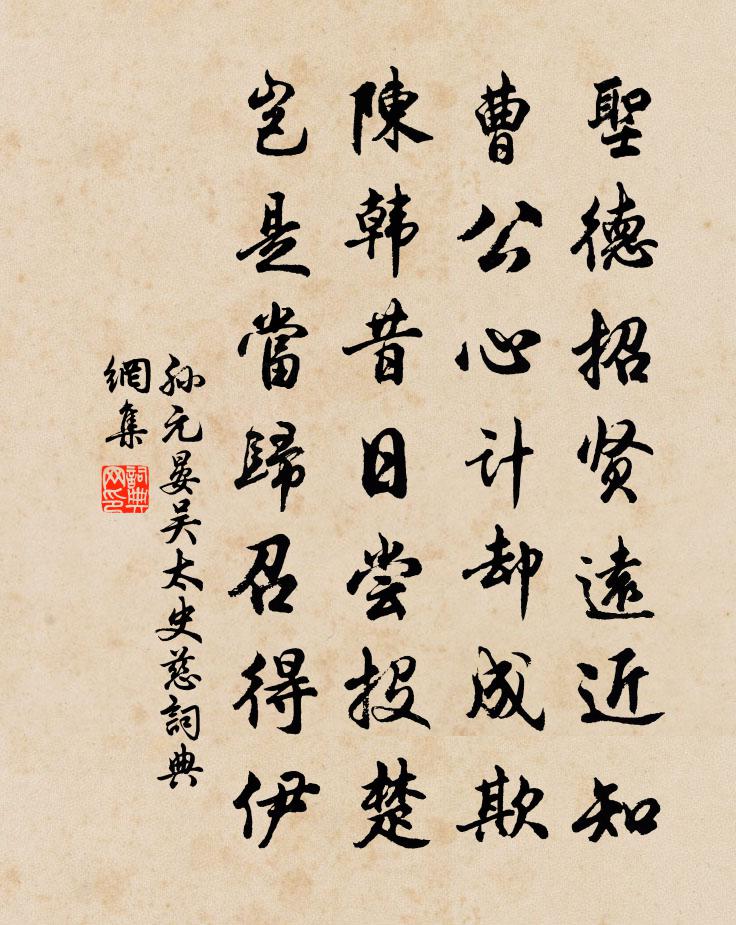 聖德招贤遠近知
曹公心计却成欺
陳韩昔日尝投楚
岂是當歸召得伊
孙元晏吴太史慈詞典
網集
詞典
网印